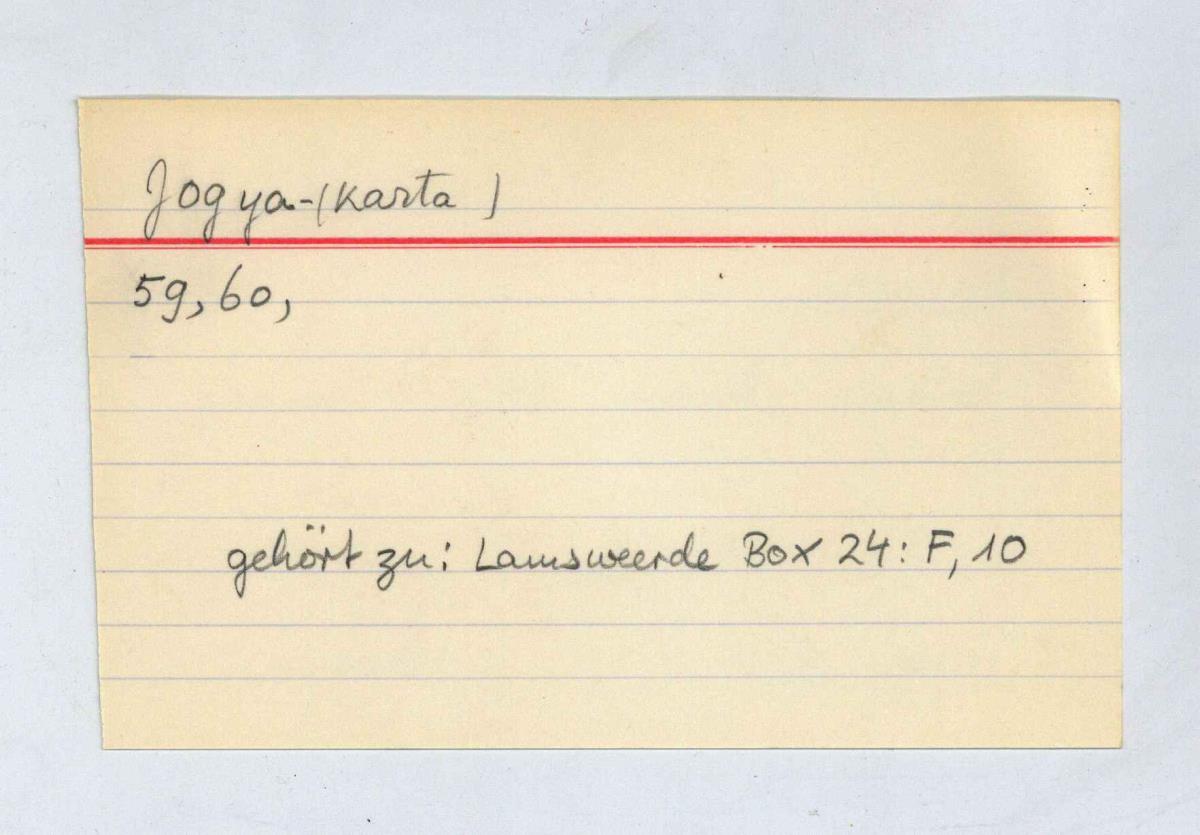 Jogya-(Karta)
59, 60,
gehört zu: Lamsweerde Box 24: F, 10